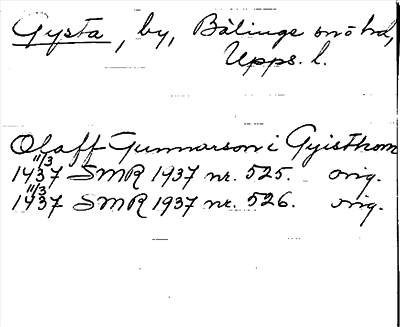 Gysta, by, Bälinge sn o hd,
Upps. l.
Olaff Gunnarson i Gyisthom
11/3
1437 SMR 1937 nr. 525. orig.
11/3
1437 SMR 1937 nr. 526. orig.